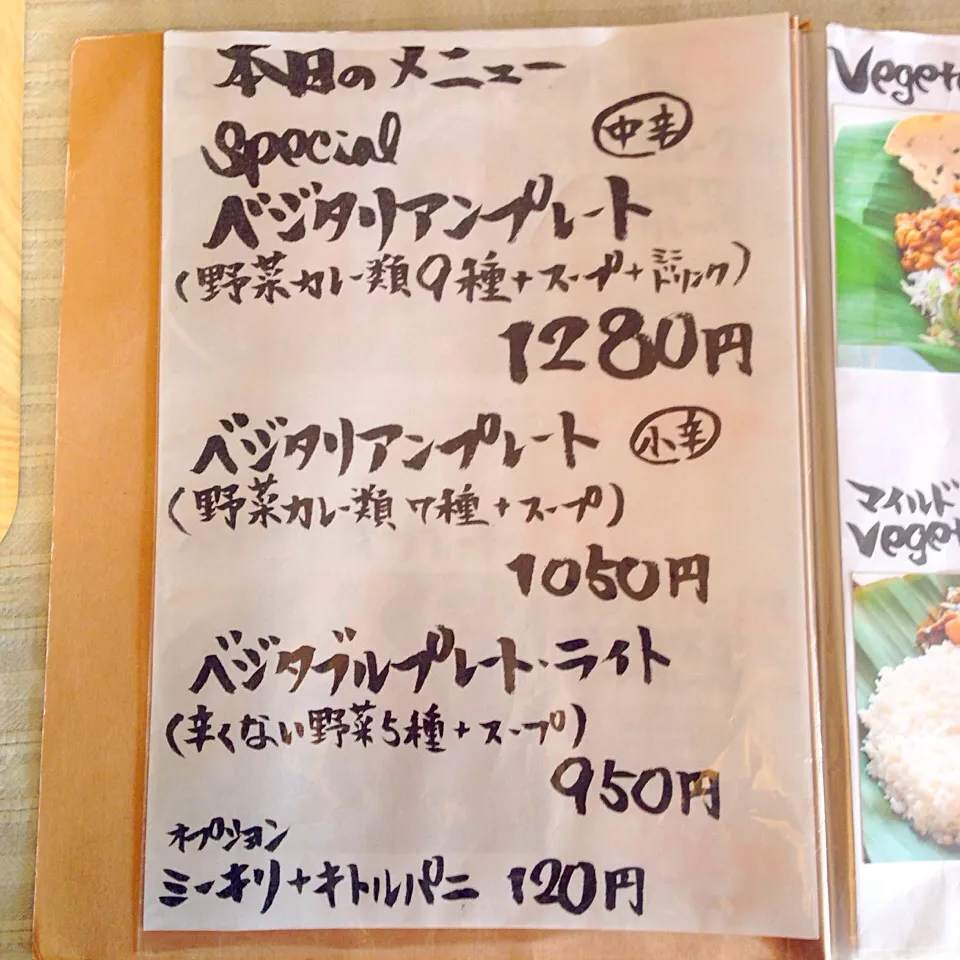 本日のメニュー
special 中辛
ベジタリアンプレート
(野菜カレー類9種+スープ+ミニドリンク)
1280円
ベジタリアンプレート 小辛
(野菜カレー類7種+スープ)
1050円
ベジタブルプレート・ライト
(辛くない野菜5種+スープ)
950円
オプション
ミーキリ+キトルパニ 120円
Veget
マイルド
Veget